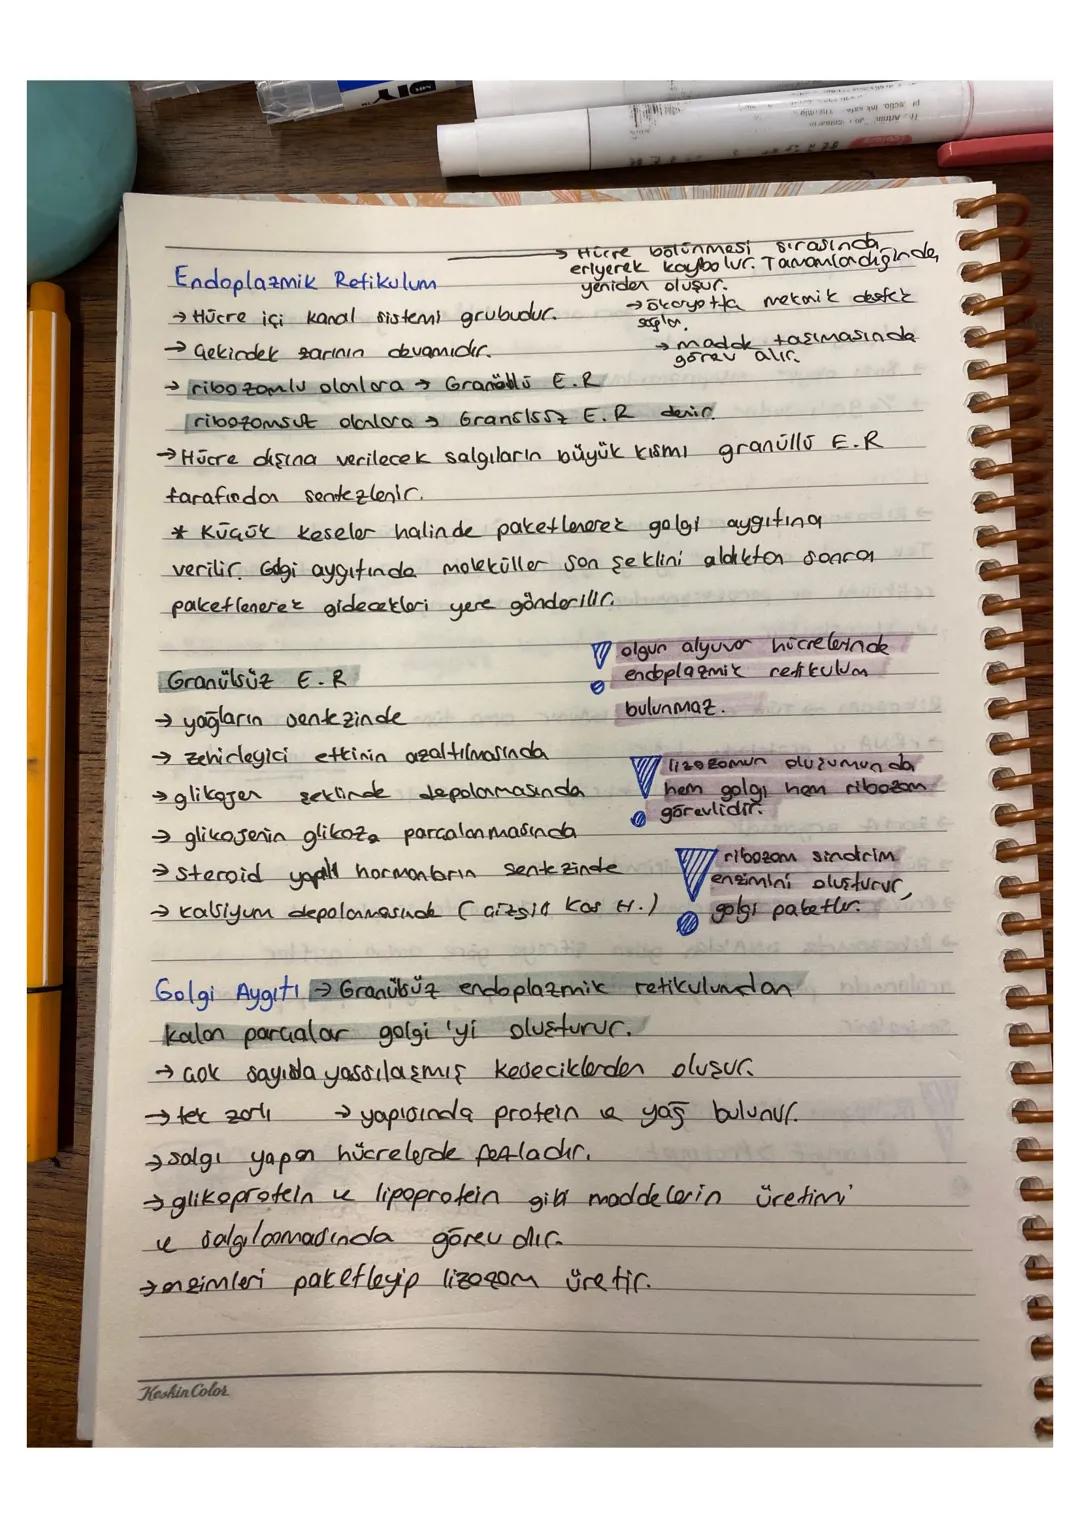 → Hücre bölünmesi sırasında
eriyerek kaybolur. Tamamlandığında,
yeniden oluşur.
Endoplazmik Retikulum
→ ökaryotta mekanik destek
sağlar.
→ Hücre içi kanal sistemi grubudur.
→ madde taşımasında
görev alır.
→ Çekirdek zarının devamıdır.
→ ribozomlu olanlara → Granüllü E.R
ribozomsuz olanlara → Granülsüz E.R denir.
→ Hücre dışına verilecek salgıların büyük kısmı granüllü E.R
tarafından sentezlenir.
* Küçük keseler halinde paketlenerek golgi aygıtına
verilir. Golgi aygıtında moleküller son şeklini aldıktan sonra
paketlenerek gidecekleri yere gönderilir.
olgun alyuvar hücrelerinde
endoplazmik retikulum
bulunmaz.
Granülsüz E.R
→ yağların sentezinde
→ zehirleyici etkinin azaltılmasında
→ glikojen şeklinde depolamasında
→ glikojenin glikoza parçalanmasında
→ steroid yapılı hormonların sentezinde
→ kalsiyum depolamasında ( çizgili kas H. )
lizozomun oluşumunda
hem golgi hem ribozom
görevlidir.
ribozom sindirim
enzimini oluşturur,
golgi paketler.
Golgi Aygıtı → Granülsüz endoplazmik retikulumdan
kalan parçalar golgi'yi oluşturur.
→ çok sayıda yassılaşmış keseciklerden oluşur.
→ tek zarlı → yapısında protein ve yağ bulunur.
→ salgı yapan hücrelerde fazladır.
→ glikoprotein ve lipoprotein gibi maddelerin üretimi
ve salgılanmasında görevdir.
→ enzimleri paketleyip lizozom üretir.
Keskin Color